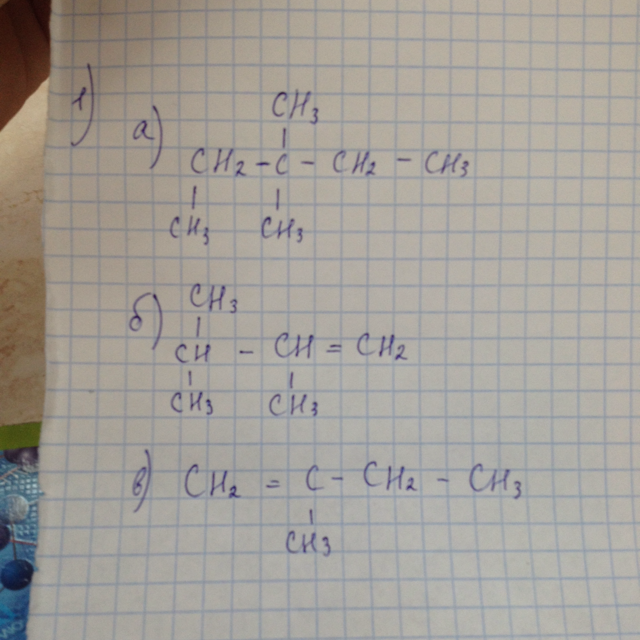 1)
а)
CH3
CH2 - C - CH2 - CH3
CH3 CH3
б)
CH3
CH - CH = CH2
CH3 CH3
в)
CH2 = C - CH2 - CH3
CH3